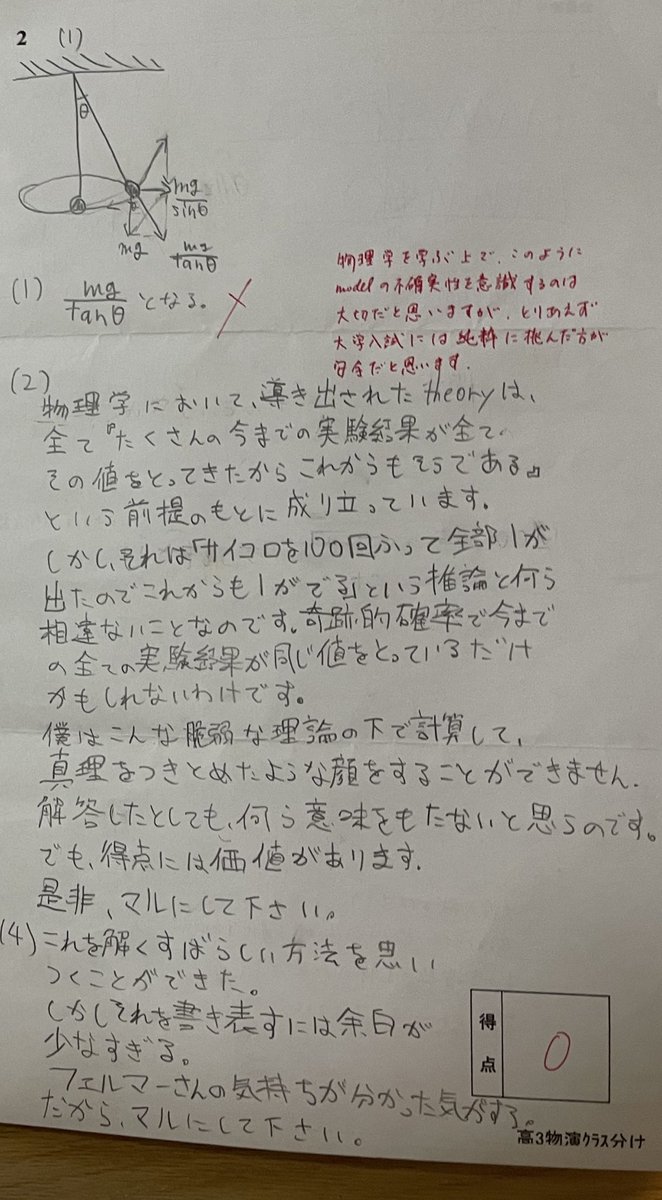 2 (1)
θ
m
m
mg
sinθ
mg
mg
tanθ
(1) mg/tanθ となる。
物理学を学ぶ上で、このように
modelの不確実性を意識するのは
大切だと思いますが、とりあえず
大学入試には純粋に挑んだ方が
安全だと思います.
(2)
物理学において、導き出されたtheoryは、
全て『たくさんの今までの実験結果が全て
その値をとってきたからこれからもそうである』
という前提のもとに成り立っています。
しかし、それは「サイコロを100回ふって全部1が
出たのでこれからも1がでる」という推論と何ら
相違ないことなのです。奇跡的確率で今まで
の全ての実験結果が同じ値をとっているだけ
かもしれないわけです。
僕はこんな脆弱な理論の下で計算して、
真理をつきとめたような顔をすることができません.
解答したとしても、何ら意味をもたないと思うのです。
でも、得点には価値があります.
是非、マルにして下さい。
(4) これを解くすばらしい方法を思い
つくことができた。
しかしそれを書き表すには余白が
少なすぎる。
フェルマーさんの気持ちが分かった気がする。
だから、マルにして下さい。
得点
0
高3物演クラス分け